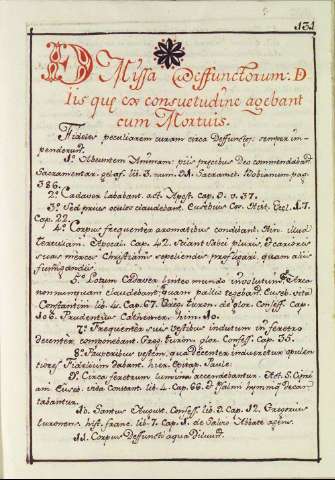 131
D Missa Deffunctorum: D
Iis que ex consuetudine agebant
cum Mortuis.
Fideles peculiarem curam circa Deffunctos semper im-
penderunt.
1º Abeuntem Animam piis precibus Deo commendabant
Sacramentar. gelas. lib. 3. num. 91. Sacramet. Bobianum pag.
386.
2º Cadaver lababant. act. Apost. cap. 9. v. 37.
3º Sed prius oculos claudebant. Eusebius Hist. Eccl. 17.
Cap. 22.
4º Corpus frequenter aromatibus condibant. Hin. illud
Tertuliani Apocal. Cap. 42. Sciant Sabei pluris, & cariores
suas merces Christianis sepeliendis profligari, quam aliis
fumigandis.
5º Lotum Cadaver linteo mundo involutum
nonnunquam claudebant quam palliis tegebant Euseb. vita
Constantini lib. 4. Cap. 67. turon. de glor. Confess. Cap.
108. Prudentius Cathemer. him. 10.
7º Frequenter suis vestibus indutum in feretro
decenter componebant. Greg. turon. glor. Confess. Cap. 35.
8º Pauperibus vestem, qua decenter indueretur opulen
tiores Fidelium dabant. hier. Epitap. Paule.
9. Circa feretrum lumina accendebantur. Act. S. Cipri
ani Euseb. vita Constant. lib. 4. Cap. 66. & Psalmi hymniq. decan
tabantur.
10. Santus August. Confess. lib. 9. Cap. 12. Gregorius
turonens. hist. franc. lib. 7. Cap. 1. de Salvio Abbate agens.
11. Corpus Deffuncti aqua Diluunt.